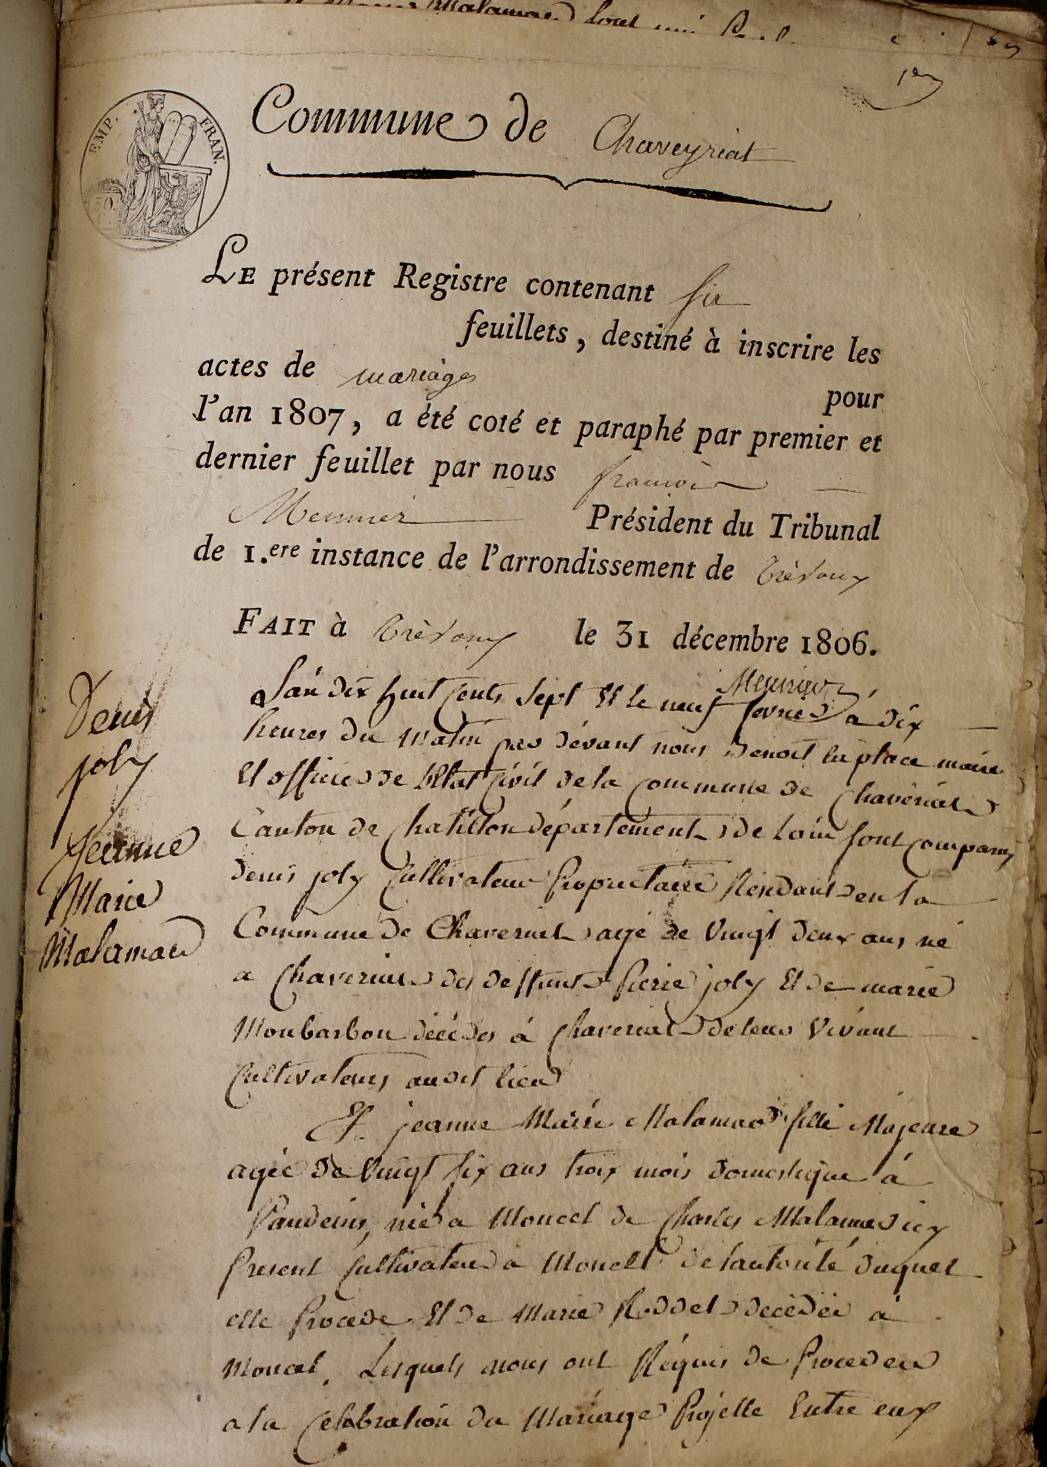 Malamard
1er
EMP. FRAN.
Commune de Chaveyriat
LE présent Registre contenant six
feuillets, destiné à inscrire les
actes de mariages pour
l'an 1807, a été coté et paraphé par premier et
dernier feuillet par nous françois
Meunier Président du Tribunal
de 1.ere instance de l'arrondissement de Trévoux
FAIT à Trévoux le 31 décembre 1806.
Meunier
Denis
joly
&
Jeanne
Marie
Malamard
L'an dix huit cents sept Et le neuf fevrier à dix
heures du matin par dévant nous Benoit laplace maire
Et officier de l'Etat Civil de la Commune de Chavériat
Canton de Chatillon département de Lain sont comparus
denis joly Cultivateur Propriétaire Résidant en la
Commune de Chaveriat agé de vingt deux ans né
a Chaveriat des deffunts Pierre joly Et de marie
Monbarbon décédés à Chaveriat de leur vivant
Cultivateurs audit lieu
Et jeanne Marie Malamard fille Majeure
agée de vingt six ans trois mois domestique à
Vandeins, née a Moncel de Charles Malamard icy
Present Cultivateur a Moncell de lautorité duquel
elle Procede Et de Marie Roddet decédée à
Moncel. Lesquels nous ont Réquis de Proceder
a la Celébration du Mariage Projetté Entre eux